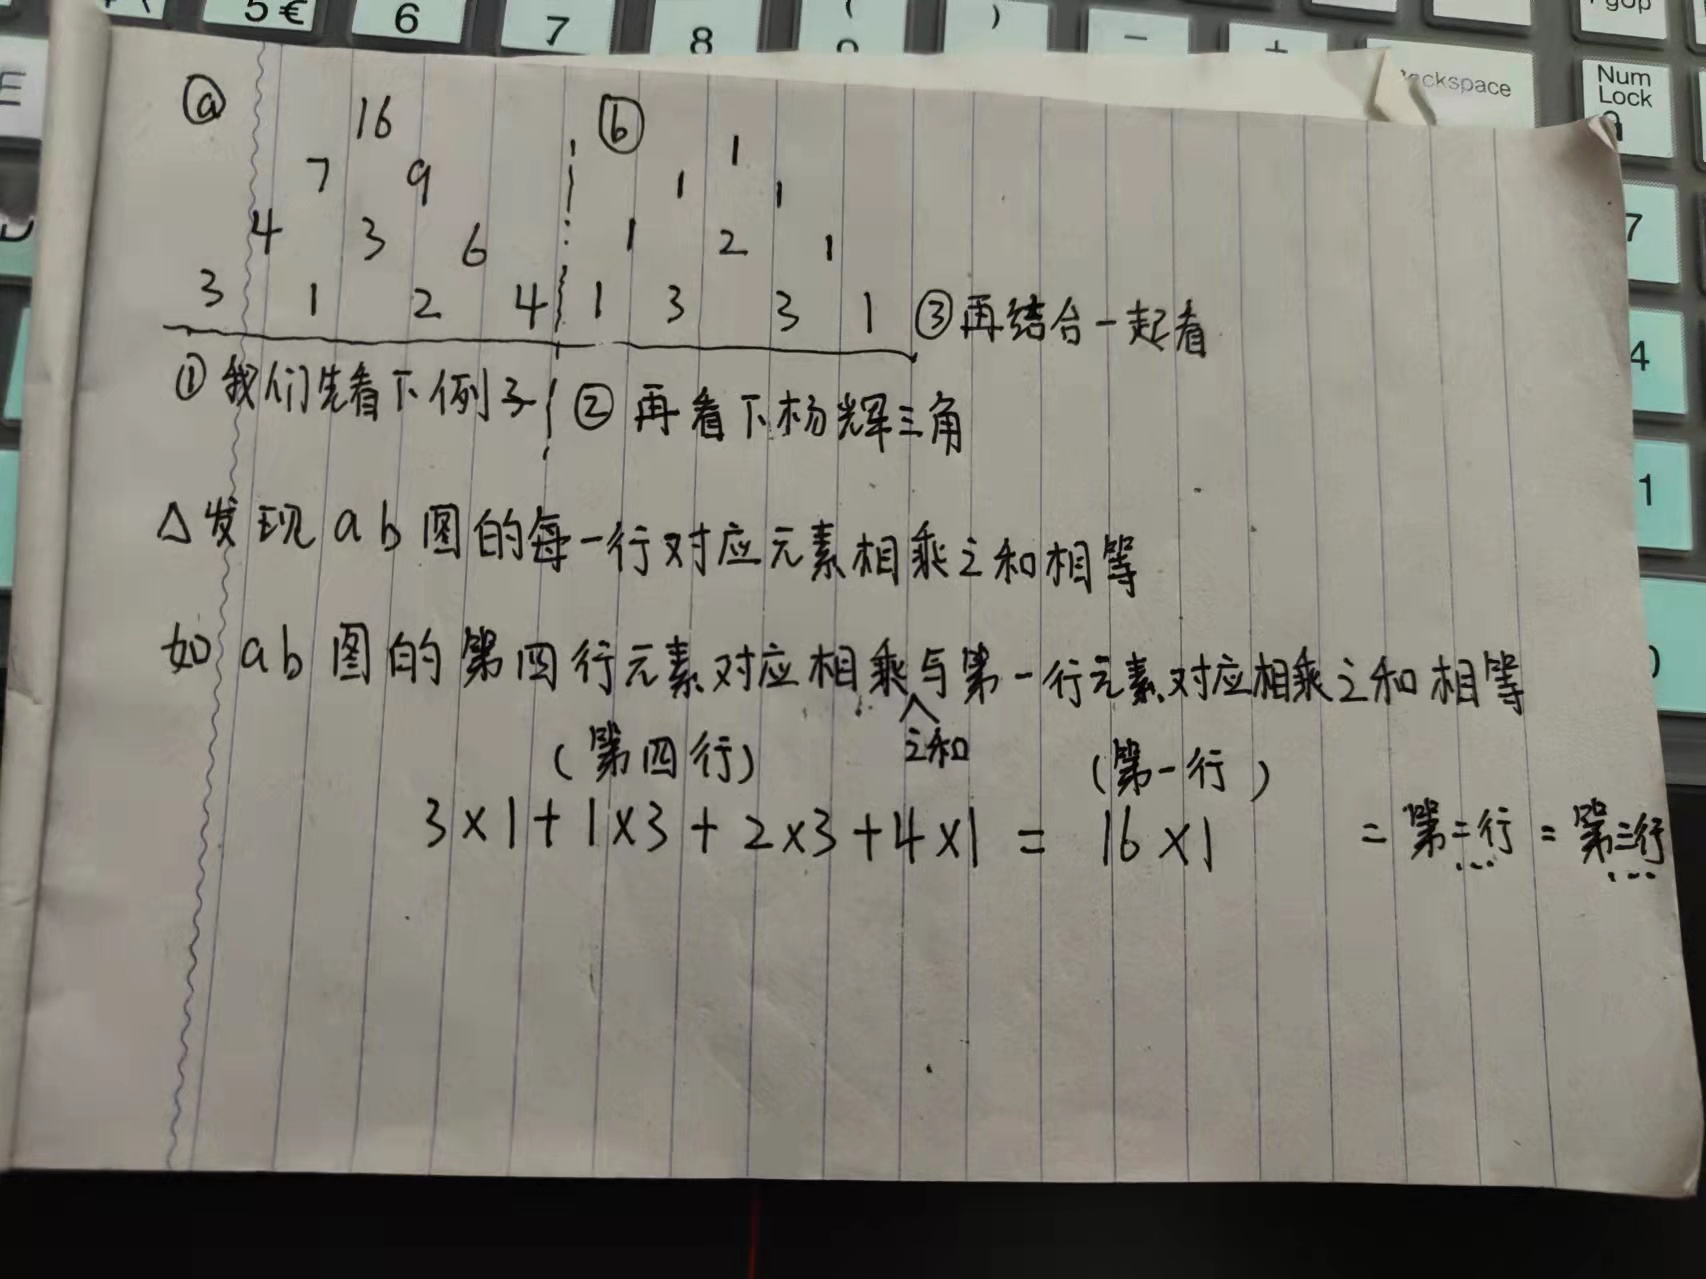 5 €
6
7
8
9
(
)
-
+
Backspace
PgUp
Num
Lock
7
4
1
0
E
D
ⓐ
16
7 9
4 3 6
3 1 2 4
ⓑ
1
1 1
1 2 1
1 3 3 1
①我们先看下例子
②再看下杨辉三角
③再结合一起看
△发现ab图的每一行对应元素相乘之和相等
如ab图的第四行元素对应相乘之和与第一行元素对应相乘之和相等
(第四行) (第一行)
3×1+1×3+2×3+4×1=16×1 =第二行=第三行